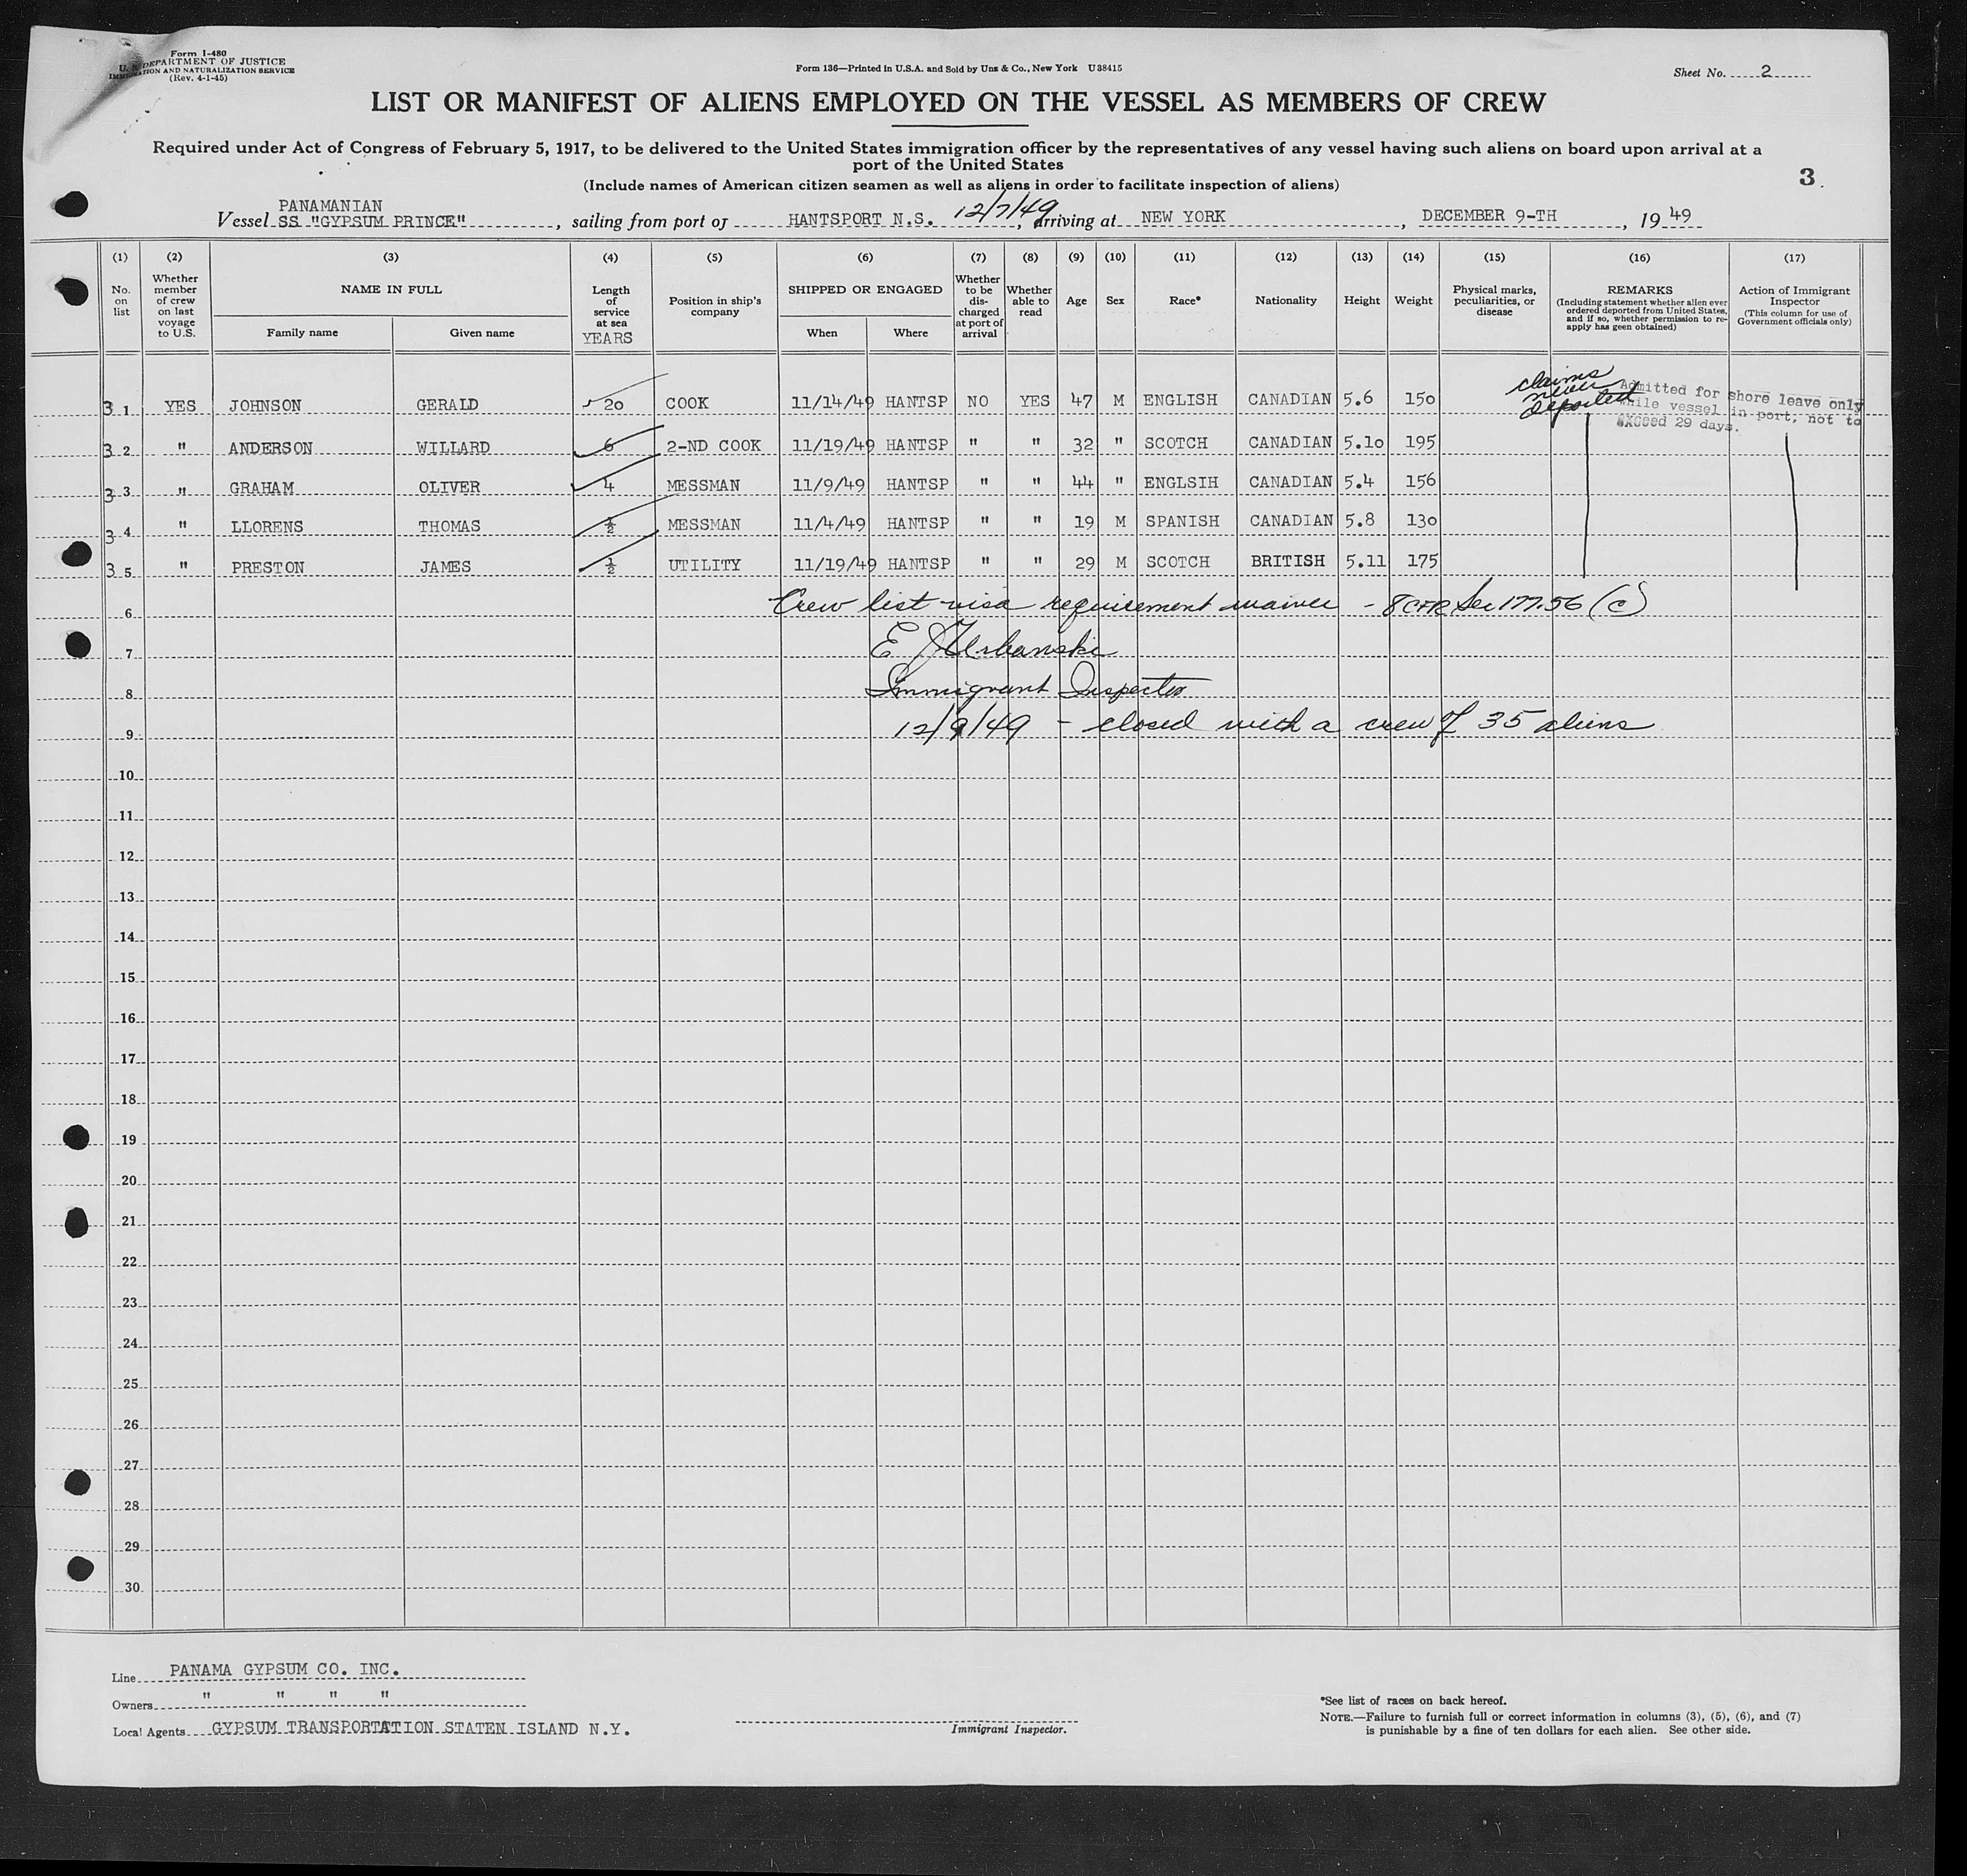 Form I-480
U. S. DEPARTMENT OF JUSTICE
IMMIGRATION AND NATURALIZATION SERVICE
(Rev. 4-1-45)
Form 136—Printed in U.S.A. and Sold by Unz & Co., New York U38415
Sheet No. 2
LIST OR MANIFEST OF ALIENS EMPLOYED ON THE VESSEL AS MEMBERS OF CREW
Required under Act of Congress of February 5, 1917, to be delivered to the United States immigration officer by the representatives of any vessel having such aliens on board upon arrival at a
port of the United States
(Include names of American citizen seamen as well as aliens in order to facilitate inspection of aliens)
3
PANAMANIAN
Vessel SS "GYPSUM PRINCE", sailing from port of HANTSPORT N.S. 12/7/49, arriving at NEW YORK, DECEMBER 9-TH, 19 49
(1) No. on list
(2) Whether member of crew on last voyage to U.S.
(3) NAME IN FULL Family name Given name
(4) Length of service at sea YEARS
(5) Position in ship's company
(6) SHIPPED OR ENGAGED When Where
(7) Whether to be discharged at port of arrival
(8) Whether able to read
(9) Age
(10) Sex
(11) Race*
(12) Nationality
(13) Height
(14) Weight
(15) Physical marks, peculiarities, or disease
(16) REMARKS (Including statement whether alien ever ordered deported from United States, and if so, whether permission to re-apply has geen obtained)
(17) Action of Immigrant Inspector (This column for use of Government officials only)
31 YES JOHNSON GERALD 20 COOK 11/14/49 HANTSP NO YES 47 M ENGLISH CANADIAN 5.6 150 claims never deported Admitted for shore leave only while vessel in port, not to exceed 29 days.
32 " ANDERSON WILLARD 6 2-ND COOK 11/19/49 HANTSP " " 32 " SCOTCH CANADIAN 5.10 195
33 " GRAHAM OLIVER 4 MESSMAN 11/9/49 HANTSP " " 44 " ENGLSIH CANADIAN 5.4 156
34 " LLORENS THOMAS ½ MESSMAN 11/4/49 HANTSP " " 19 M SPANISH CANADIAN 5.8 130
35 " PRESTON JAMES ½ UTILITY 11/19/49 HANTSP " " 29 M SCOTCH BRITISH 5.11 175
6 Crew list visa requirement waiver - 8 CFR Sec 177.56 (c)
7 E J Urbanski
8 Immigrant Inspector
9 12/9/49 - closed with a crew of 35 aliens
10
11
12
13
14
15
16
17
18
19
20
21
22
23
24
25
26
27
28
29
30
Line PANAMA GYPSUM CO. INC.
Owners " " " "
Local Agents GYPSUM TRANSPORTATION STATEN ISLAND N.Y.
Immigrant Inspector.
*See list of races on back hereof.
NOTE.—Failure to furnish full or correct information in columns (3), (5), (6), and (7)
is punishable by a fine of ten dollars for each alien. See other side.